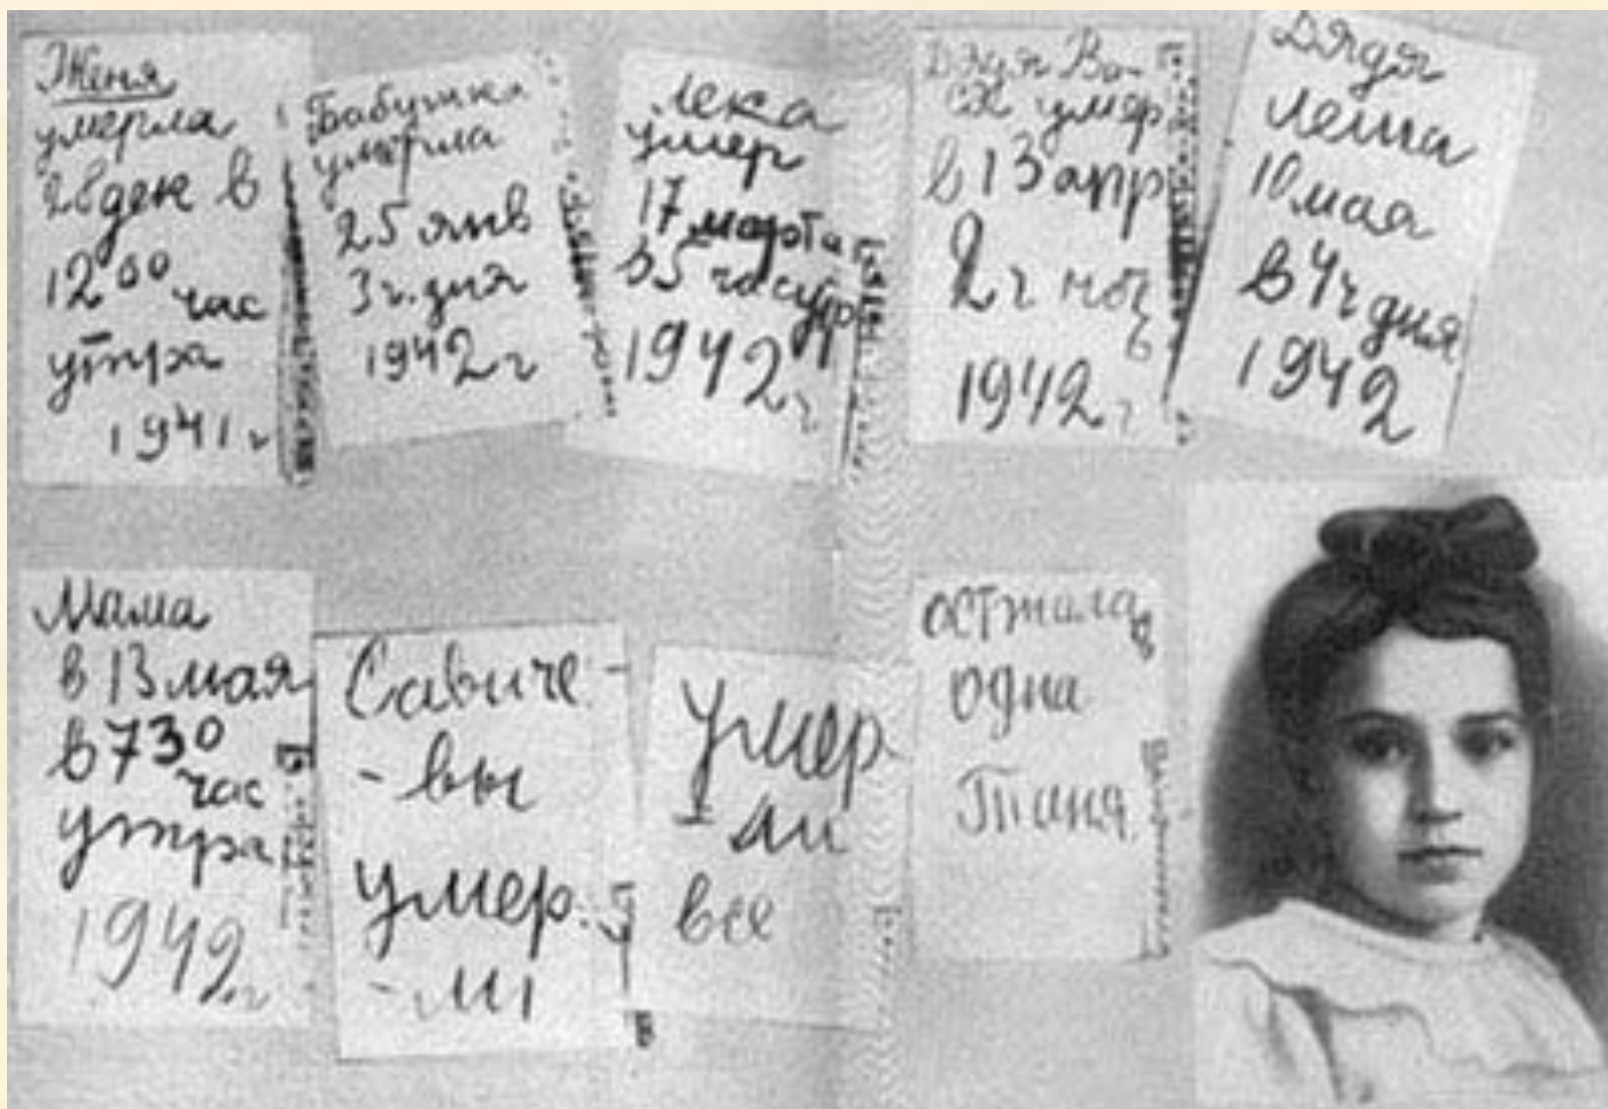 Женя
умерла
28 ден в
12 00 час
утра
1941 г
Бабушка
умерла
25 янв
3 ч. дня
1942 г
Лека
умер
17 марта
в 5 час утр
1942 г
Дядя Ва-
ся умер
в 13 апр
2 ч ноч
ь
1942 г
Дядя
Леша
10 мая
в 4 ч дня
1942
Мама
в 13 мая
в 7 30
час
утра
1942 г
Савиче-
-вы
умер-
-ли
Умер
-ли
все
Осталась
одна
Таня